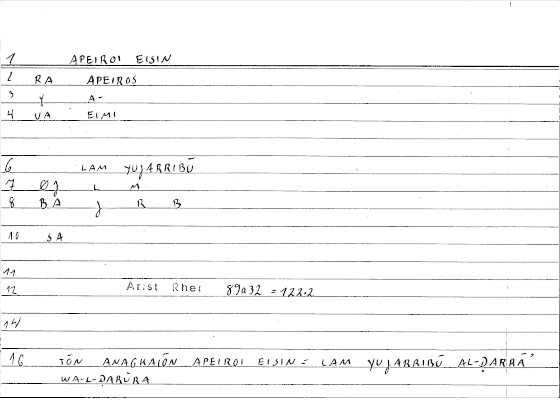 1 APEIROI EISIN
2 RA APEIROS
3 Y A-
4 UA EIMI
6 LAM YUJARRIBŪ
7 ØJ L M
8 BA J R B
10 SA
11
12 Arist Rhet 89a32 = 122.2
14
16 TŌN ANAGKAIŌN APEIROI EISIN = LAM YUJARRIBŪ AL-ḌARRĀʾ
WA-L-ḌARŪRA